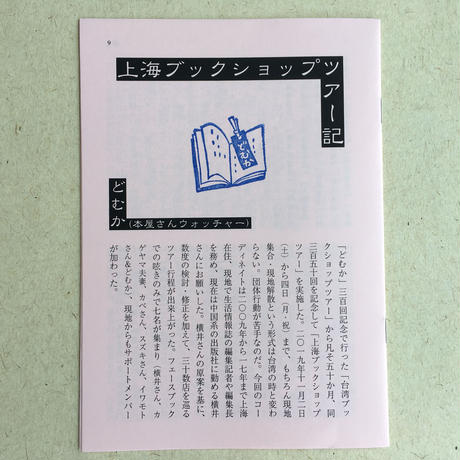 9
上海ブックショップツアー記
どむか
どむか(本屋さんウォッチャー)
「どむか」三百回記念で行った「台湾ブッ
クショップツアー」から凡そ五十か月、同
三百五十回を記念して「上海ブックショップ
ツアー」を実施した。二〇一九年十一月二日
(土)から四日(月・祝)まで、もちろん現地
集合・現地解散という形式は台湾の時と変わ
らない。団体行動が苦手なのだ。今回のコー
ディネイトは二〇〇九年から一七年まで上海
在住、現地で生活情報誌の編集記者や編集長
を務め、現在は中国系の出版社に勤める横井
さんにお願いした。横井さんの原案を基に、
数度の検討・修正を加えて、三十数店を巡る
ツアー行程が出来上がった。フェースブック
での呟きのみで七名が集まり(横井さん、カ
ゲヤマ夫妻、カベさん、スズキさん、イワモト
さん&どむか)、現地からもサポートメンバー
が加わった。